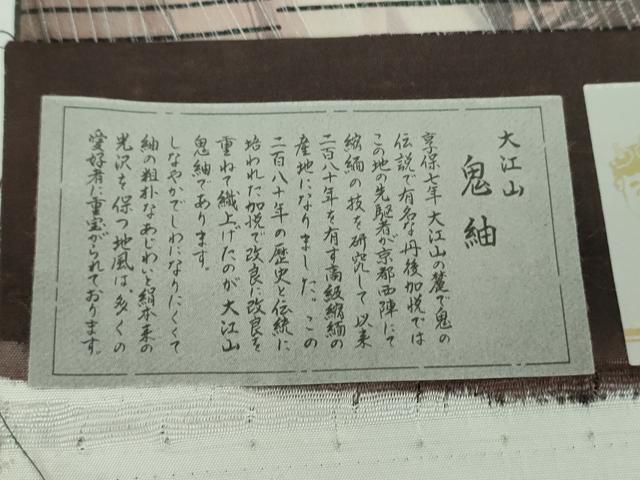 大江山
鬼紬
享保七年 大江山の麓で鬼の
伝説で有名な丹後加悦では
この地の先駆者が京都西陣にて
縮緬の技を研究して 以来
二百八十年を有す高級縮緬の
産地になりました。この
二百八十年の歴史と伝統に
培われた加悦で改良に改良を
重ねて織上げたのが 大江山
鬼紬であります。
しなやかでしわになりにくくて
紬の粗朴なあじわいと絹本来の
光沢を保つ地風は、多くの
愛好者に重宝がられております。